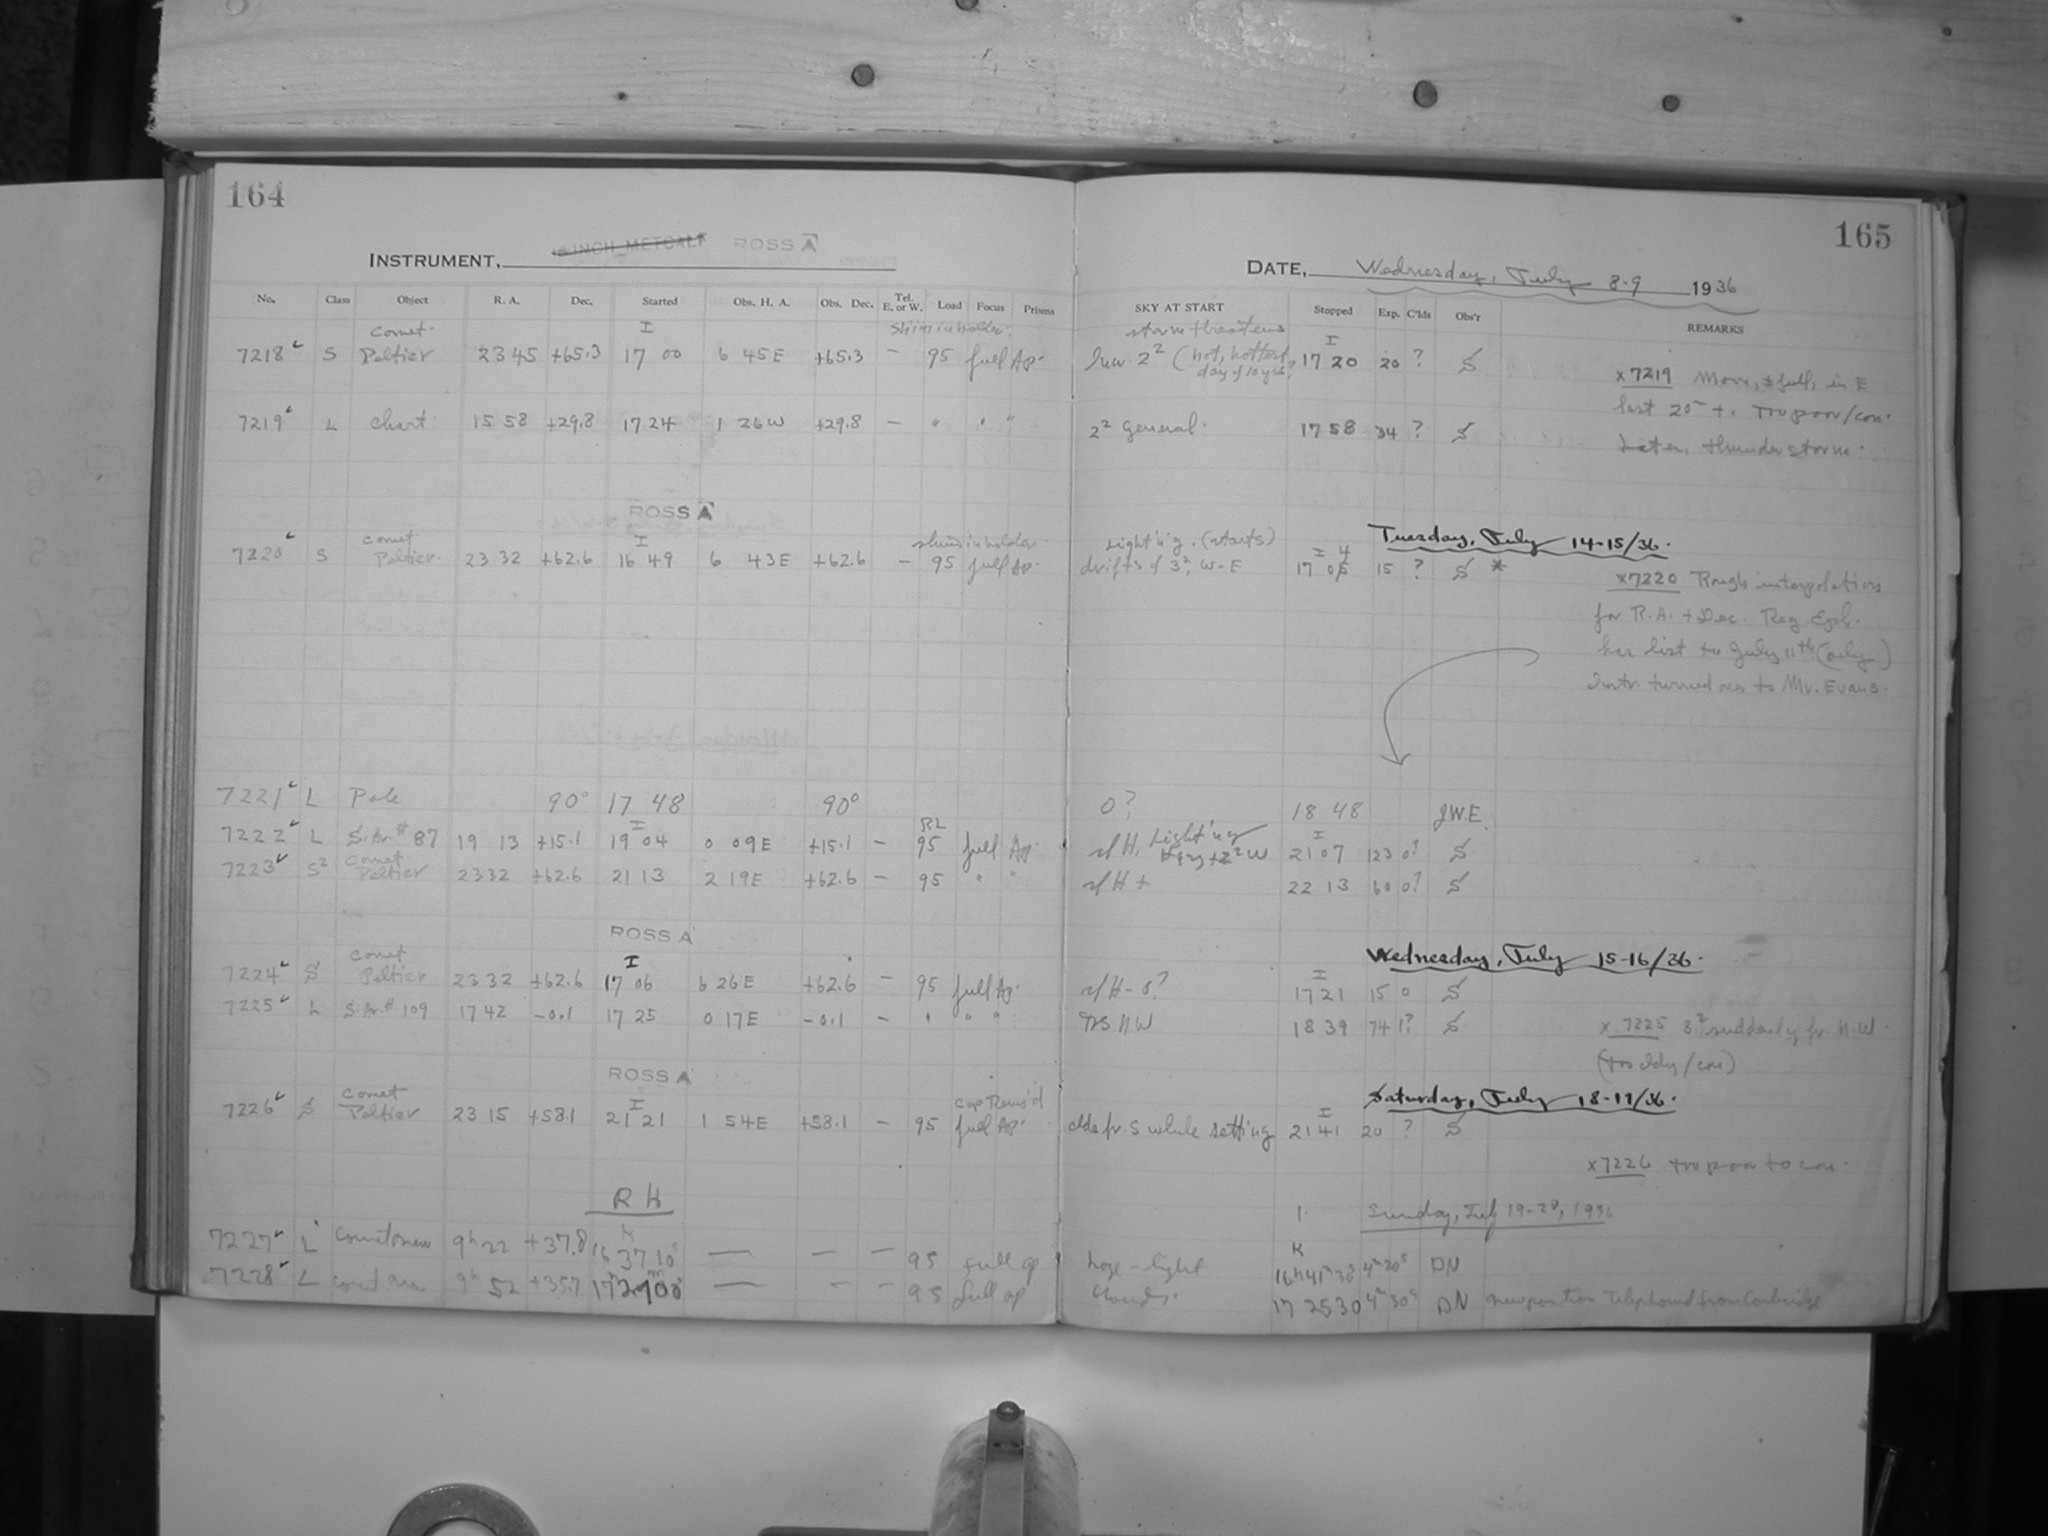 164
165
INSTRUMENT, 12 INCH METCALF ROSS A
DATE, Wednesday, July 8-9 1936
No. Class Object R. A. Dec. Started Obs. H. A. Obs. Dec. Tel. E. or W. Load Focus Prisms
SKY AT START Stopped Exp. C'lds Obs'r REMARKS
Comet I Shim in holder storm threatens I
7218 S Peltier 23 45 +65.3 17 00 6 45E +65.3 — 95 full Ap. 2² (hot, hottest day of 10 yrs? 17 20 20 ? S
x7219 Moon, full, in E
last 20 poor/con.
7219 L Chart 15 58 +29.8 17 24 1 26W +29.8 — " " " 2² General. 17 58 34 ? S
Later, thunder storm.
ROSS A
Tuesday, July 14-15/36.
Comet I shim in holder Light'g. (starts) I 4
7220 S Peltier. 23 32 +62.6 16 49 6 43E +62.6 — 95 full Ap. drifts of 3², W-E 17 05 15 ? S *
x7220 Rough interpolations
for R.A. + Dec. Reg. Eph.
has list to July 11th (only)
Instr. turned over to Mr. Evans.
7221 L Pole 90° 17 48 90° 0? 18 48 J.W.E.
7222 L S.Ar.# 87 19 13 +15.1 I 19 04 0 09E +15.1 — RL 95 full Ap. H, Light'ng +2² W I 21 07 123 0? S
7223 S² Comet Peltier 23 32 +62.6 21 13 2 19E +62.6 — 95 " " H + 22 13 60 0? S
ROSS A
Wednesday, July 15-16/36.
7224 S Comet Peltier 23 32 +62.6 I 17 06 6 26E +62.6 — 95 full Ap. H-0? I 17 21 15 0 S
7225 L S.Ar.# 109 17 42 -0.1 17 25 0 17E -0.1 — " " " NW 18 39 74 1? S x 7225 3² suddenly fr. N.W.
(too cldy/con)
ROSS A
Saturday, July 18-19/36.
7226 S Comet Peltier 23 15 +58.1 I 21 21 1 54E +58.1 — 95 Cap Remo'd full Ap. clds fr. S while setting I 21 41 20 ? S
x7226 too poor to con.
R H
1. Sunday, July 19-20, 1936
7227 L Comet new 9h 22 +37.8 16 37 10s — — — 95 full ap haze-light 16h 41m 30s 4m 20s DN
7228 L Comet new 9h 52 +35.7 17 — — — 95 full ap clouds. 17 25 30 4m 30s DN new position Telephoned from Cambridge